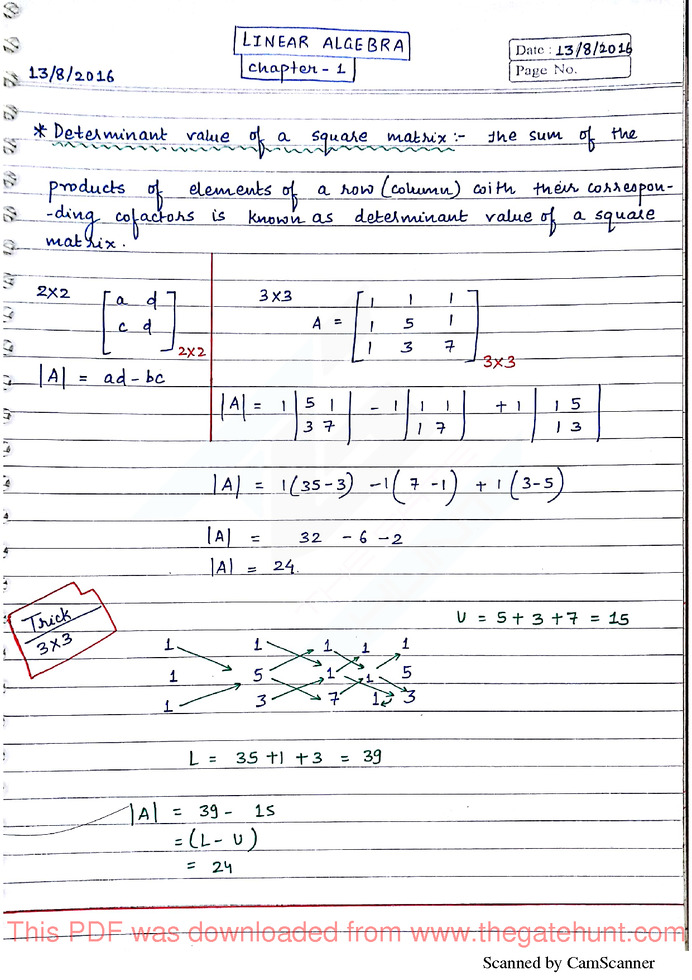 LINEAR ALGEBRA
Chapter - 1
Date : 13/8/2016
Page No.
13/8/2016
* Determinant value of a square matrix :- The sum of the
products of elements of a row (column) with their correspon-
-ding cofactors is known as determinant value of a square
matrix.
2×2
a d
c d
2×2
|A| = ad - bc
3×3
A =
1 1 1
1 5 1
1 3 7
3×3
|A| = 1 |5 1| - 1 |1 1| + 1 |1 5|
|3 7| |1 7| |1 3|
|A| = 1(35-3) -1(7 -1) + 1(3-5)
|A| = 32 - 6 - 2
|A| = 24.
Trick
3×3
U = 5 + 3 + 7 = 15
1 1 1 1 1
1 5 1 1 5
1 3 7 1 3
L = 35 + 1 + 3 = 39
|A| = 39 - 15
= (L - U)
= 24
This PDF was downloaded from www.thegatehunt.com
Scanned by CamScanner